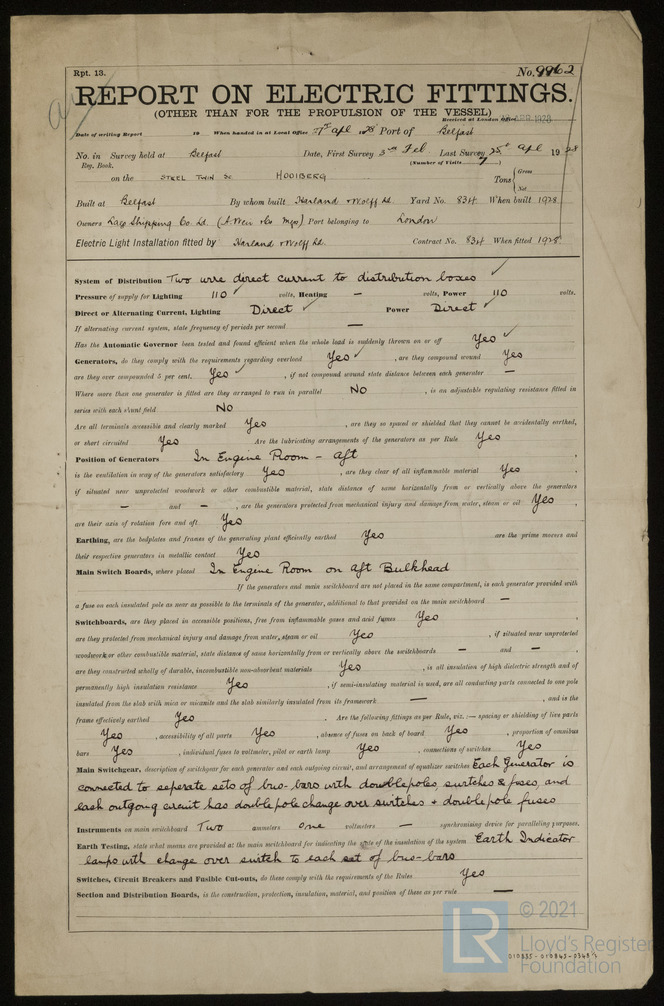 Rpt. 13.
No. 9962
REPORT ON ELECTRIC FITTINGS.
(OTHER THAN FOR THE PROPULSION OF THE VESSEL)
Received at London Office
Date of writing Report 19 When handed in at Local Office 27th Apl 1928 Port of Belfast
No. in Survey held at Belfast Date, First Survey 3rd Feb Last Survey 25th Apl 1928
Reg. Book. (Number of Visits 7)
on the STEEL TWIN SC HOOIBERG Tons { Gross Net
Built at Belfast By whom built Harland & Wolff Ld. Yard No. 834. When built 1928
Owners Lago Shipping Co. Ld. (A. Weir & Co Mgrs) Port belonging to London
Electric Light Installation fitted by Harland & Wolff Ld. Contract No. 834 When fitted 1928
System of Distribution Two wire direct current to distribution boxes
Pressure of supply for Lighting 110 volts, Heating – volts, Power 110 volts.
Direct or Alternating Current, Lighting Direct Power Direct
If alternating current system, state frequency of periods per second —
Has the Automatic Governor been tested and found efficient when the whole load is suddenly thrown on or off Yes
Generators, do they comply with the requirements regarding overload Yes, are they compound wound Yes
are they over compounded 5 per cent. Yes, if not compound wound state distance between each generator —
Where more than one generator is fitted are they arranged to run in parallel No, is an adjustable regulating resistance fitted in
series with each shunt field No
Are all terminals accessible and clearly marked Yes, are they so spaced or shielded that they cannot be accidentally earthed,
or short circuited Yes Are the lubricating arrangements of the generators as per Rule Yes
Position of Generators In Engine Room – aft
is the ventilation in way of the generators satisfactory Yes, are they clear of all inflammable material Yes
if situated near unprotected woodwork or other combustible material, state distance of same horizontally from or vertically above the generators
– and –, are the generators protected from mechanical injury and damage from water, steam or oil Yes,
are their axis of rotation fore and aft Yes
Earthing, are the bedplates and frames of the generating plant efficiently earthed Yes are the prime movers and
their respective generators in metallic contact Yes
Main Switch Boards, where placed In Engine Room on aft Bulkhead
If the generators and main switchboard are not placed in the same compartment, is each generator provided with
a fuse on each insulated pole as near as possible to the terminals of the generator, additional to that provided on the main switchboard —
Switchboards, are they placed in accessible positions, free from inflammable gases and acid fumes Yes
are they protected from mechanical injury and damage from water, steam or oil Yes, if situated near unprotected
woodwork or other combustible material, state distance of same horizontally from or vertically above the switchboards – and –,
are they constructed wholly of durable, incombustible non-absorbent materials Yes, is all insulation of high dielectric strength and of
permanently high insulation resistance Yes, if semi-insulating material is used, are all conducting parts connected to one pole
insulated from the slab with mica or micanite and the slab similarly insulated from its framework —, and is the
frame effectively earthed Yes. Are the following fittings as per Rule, viz. :— spacing or shielding of live parts
Yes, accessibility of all parts Yes, absence of fuses on back of board Yes, proportion of omnibus
bars Yes, individual fuses to voltmeter, pilot or earth lamp Yes, connections of switches Yes
Main Switchgear, description of switchgear for each generator and each outgoing circuit, and arrangement of equalizer switches Each Generator is
connected to seperate sets of bus-bars with double poles, switches & fuses, and
each outgoing circuit has double pole change over switches + double pole fuses
Instruments on main switchboard Two ammeters One voltmeters — synchronising device for paralleling purposes.
Earth Testing, state what means are provided at the main switchboard for indicating the state of the insulation of the system Earth Indicator
lamps with change over switch to each set of bus-bars
Switches, Circuit Breakers and Fusible Cut-outs, do these comply with the requirements of the Rules Yes
Section and Distribution Boards, is the construction, protection, insulation, material, and position of these as per rule —
© 2021
LR
Lloyd's Register
Foundation
010835-010845-0348